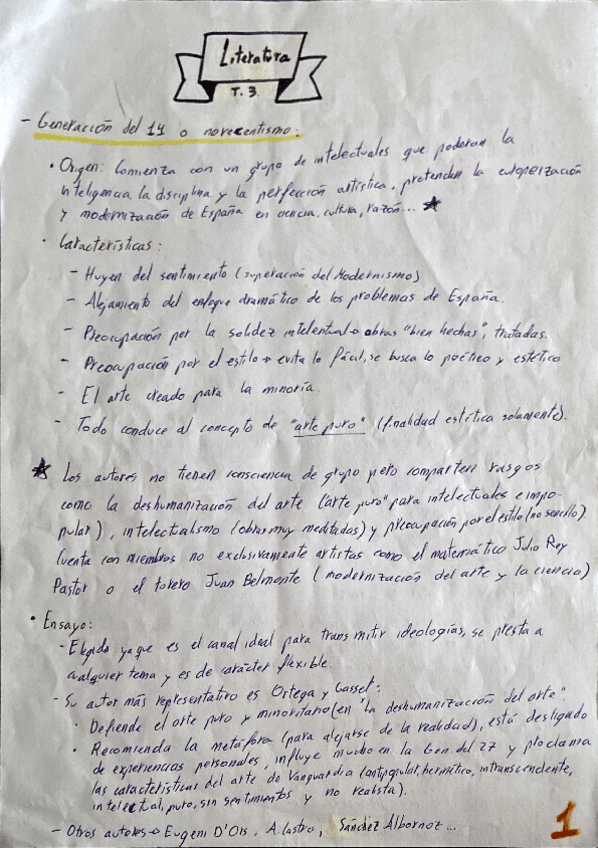 Literatura
T. 3.
- Generación del 14 o novecentismo:
• Origen: Comienza con un grupo de intelectuales que poderan la
inteligencia, la disciplina y la perfección artística, pretenden la europeización
y modernización de España en ciencia, cultura, razón... ★
• Características:
- Huyen del sentimiento (superación del Modernismo)
- Alejamiento del enfoque dramático de los problemas de España.
- Preocupación por la solidez intelentual → obras "bien hechas", tratadas.
- Preocupación por el estilo → evita lo fácil, se busca lo poético y estético
- El arte creado para la minoría.
- Todo conduce al concepto de "arte puro" (finalidad estética solamente).
★ Los autores no tienen consciencia de grupo pero comparten rasgos
como la deshumanización del arte ("arte puro" para intelectuales e impo-
pular), intelectualismo (obras muy meditadas) y preocupación por el estilo (no sencillo)
Cuenta con miembros no exclusivamente artistas como el matemático Julio Rey
Pastor o el torero Juan Belmonte (modernización del arte y la ciencia)
• Ensayo:
- Elegido ya que es el canal ideal para transmitir ideologías, se presta a
cualquier tema y es de carácter flexible.
- Su autor más representativo es Ortega y Gasset:
• Defiende el arte puro y minoritario (en "la deshumanización del arte"
• Recomienda la metáfora (para alejarse de la realidad), está desligado
de experiencias personales, influye mucho en la Gen. del 27 y proclama
las características del arte de Vanguardia (antipopular, hermético, intranscendente,
intelectual, puro, sin sentimientos y no realista).
- Otros autores → Eugeni D'Ors, A. Castro, Sánchez Albornoz...
1